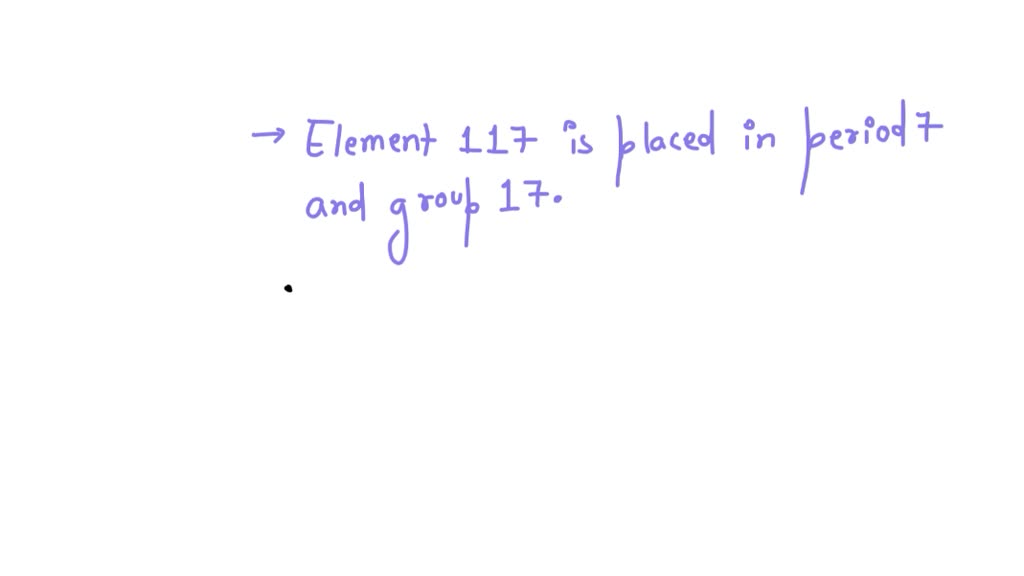 → Element 117 is placed in period 7
and group 17.